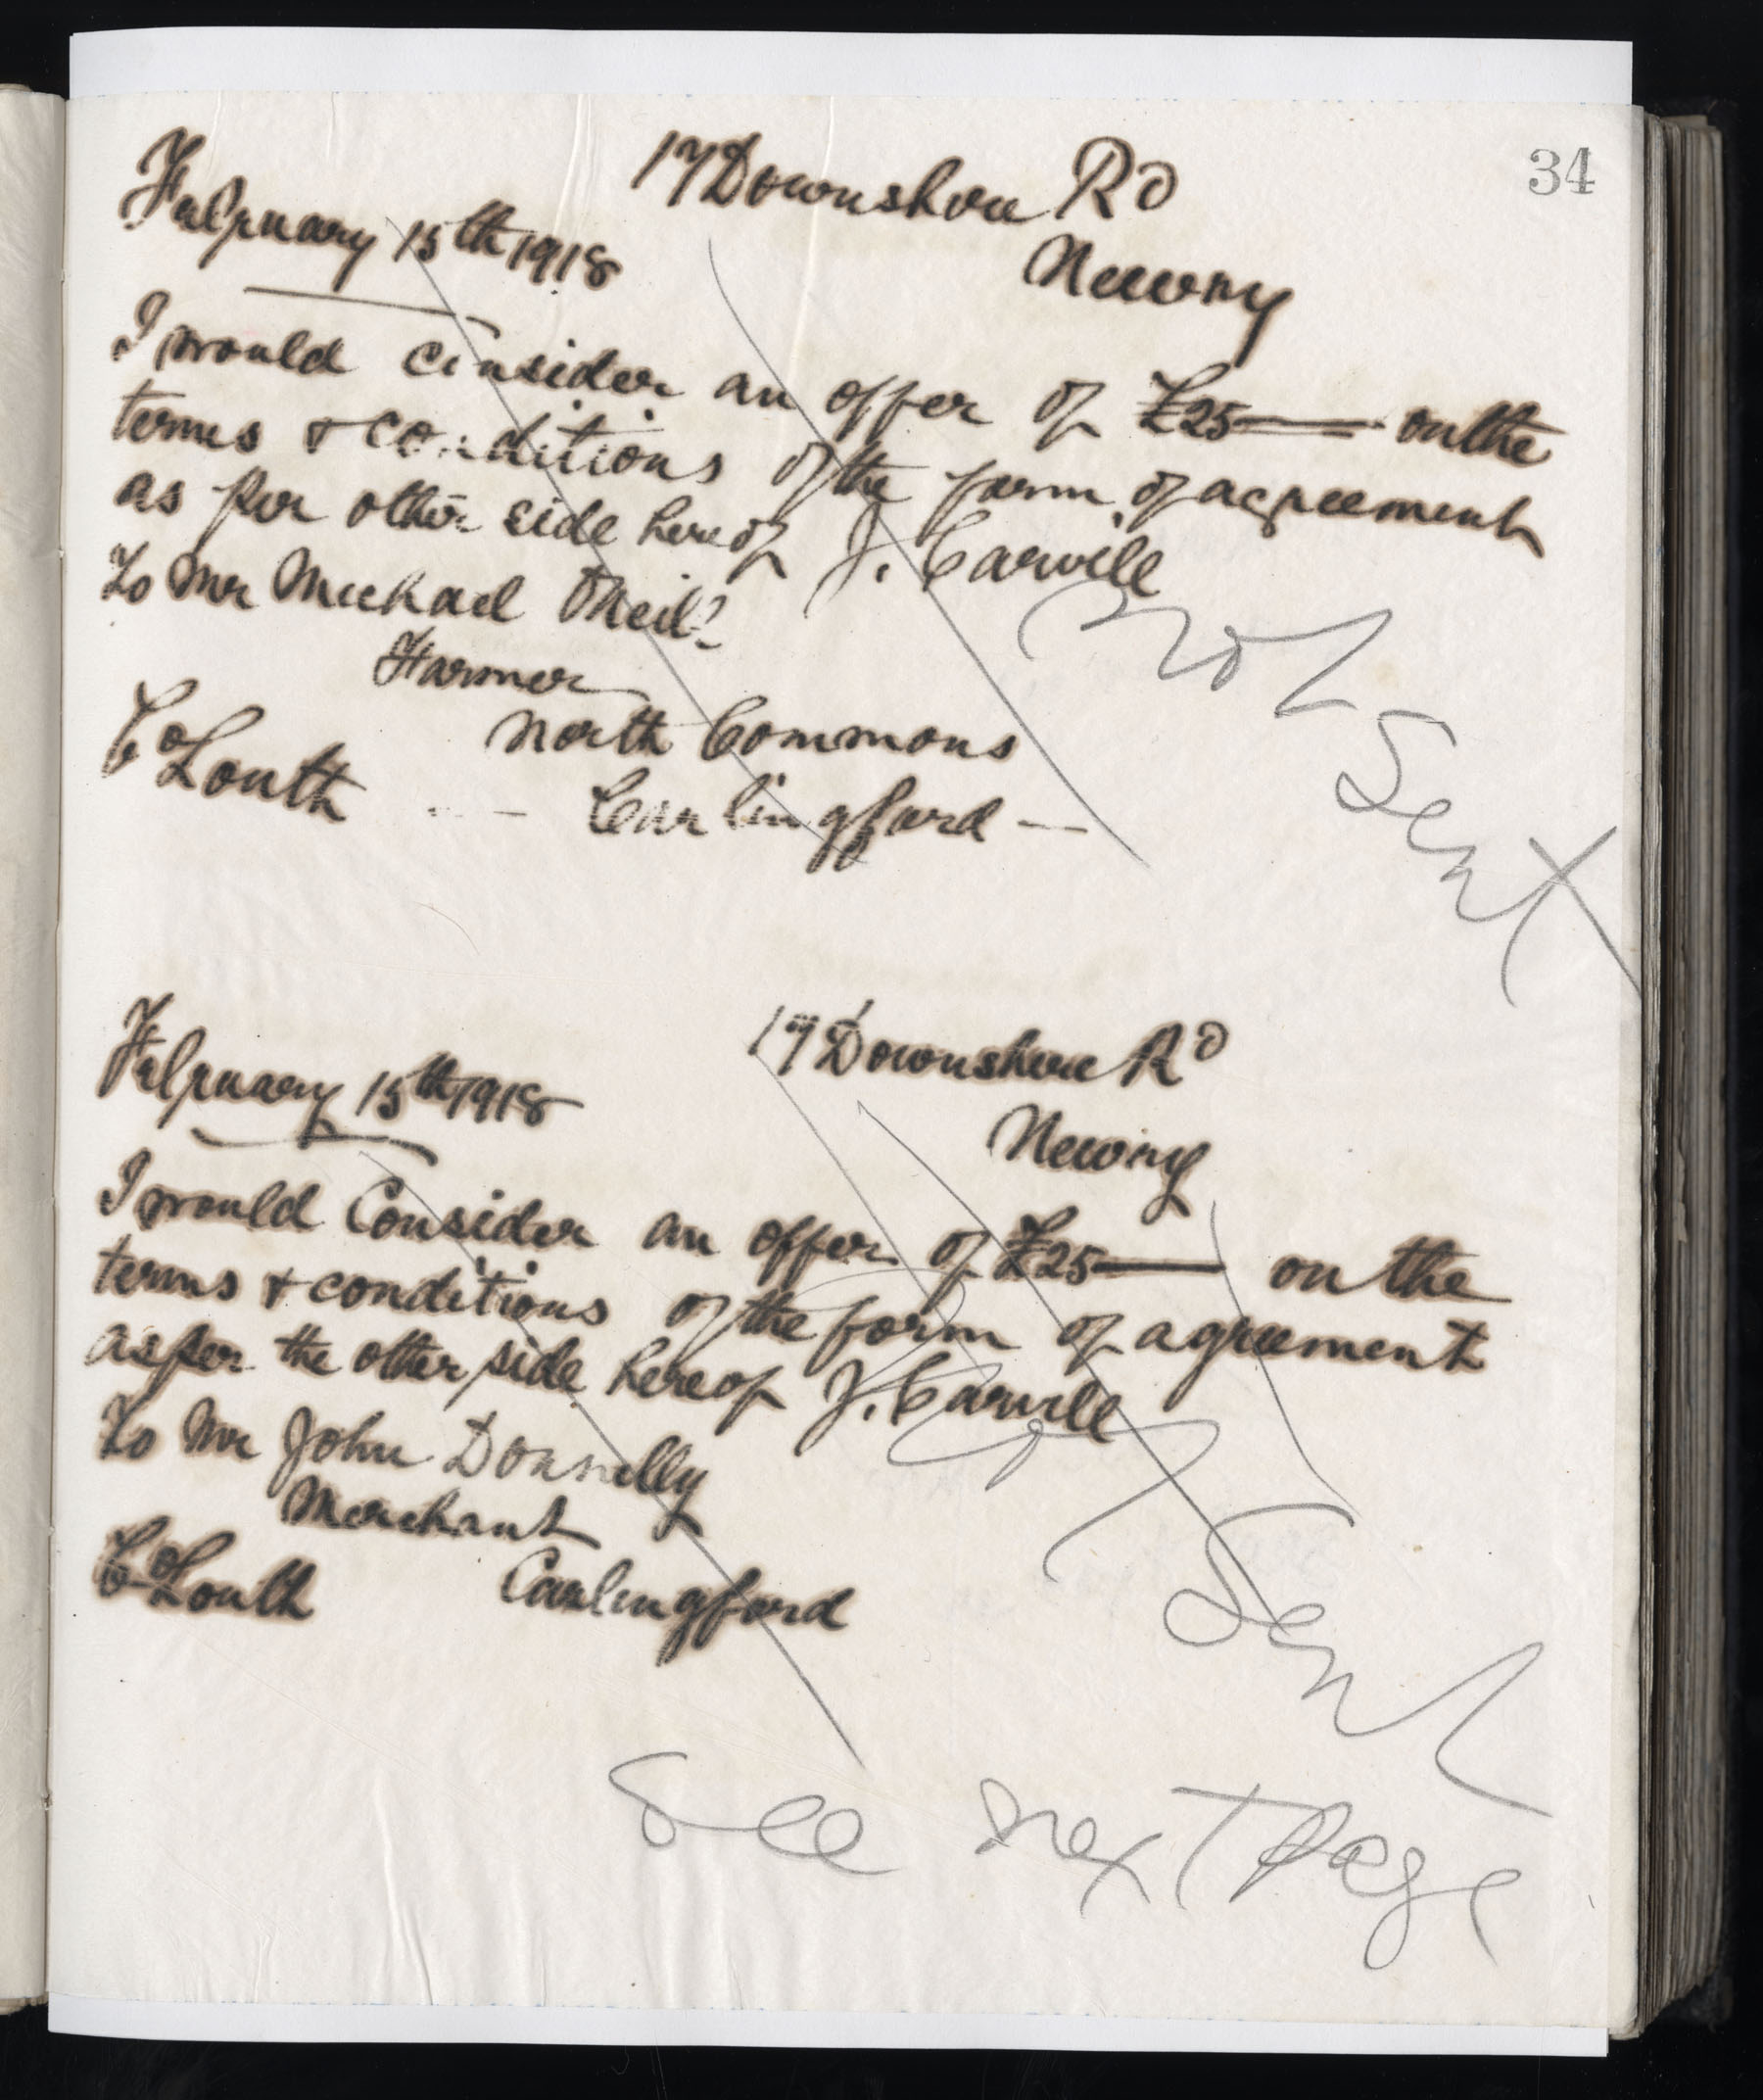 34
17 Downshire Rd
February 15th 1918
Newry
I would consider an offer of £25 — on the
terms & conditions of the form of agreement
as per other side hereof J. Carvill
To Mr Michael O'Neill
Farmer
North Commons
Co Louth -- Carlingford —
Not Sent
17 Downshire Rd
February 15th 1918
Newry
I would Consider an offer of £25 — on the
terms & conditions of the form of agreement
as per the other side hereof J. Carvill
To Mr John Donnelly
Merchant
Co Louth Carlingford
Not Sent
See next Page